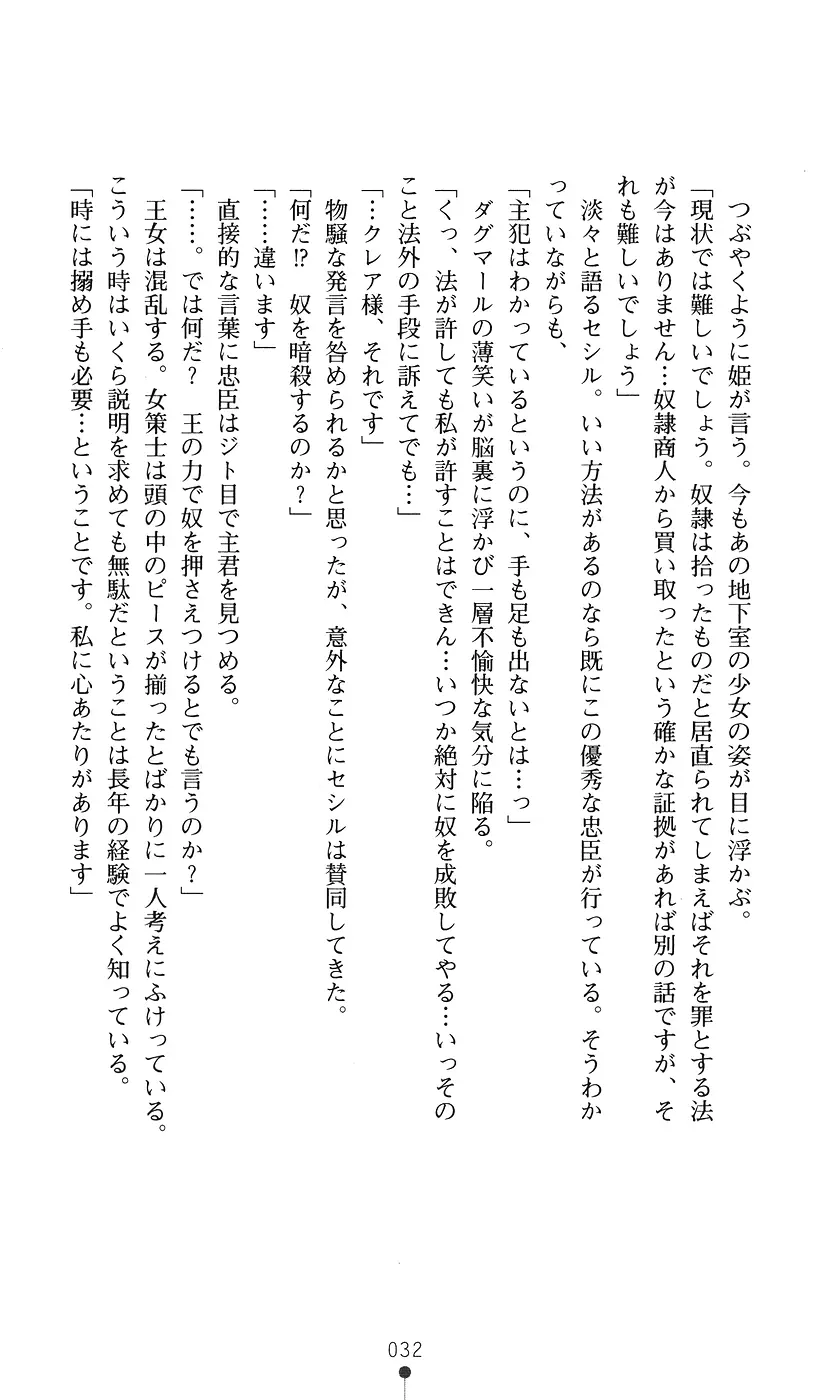 つぶやくように姫が言う。今もあの地下室の少女の姿が目に浮かぶ。
「現状では難しいでしょう。奴隷は拾ったものだと居直られてしまえばそれを罪とする法
が今はありません…奴隷商人から買い取ったという確かな証拠があれば別の話ですが、そ
れも難しいでしょう」
淡々と語るセシル。いい方法があるのなら既にこの優秀な忠臣が行っている。そうわか
っていながらも、
「主犯はわかっているというのに、手も足も出ないとは…っ」
ダグマールの薄笑いが脳裏に浮かび一層不愉快な気分に陥る。
「くっ、法が許しても私が許すことはできん…いつか絶対に奴を成敗してやる…いっその
こと法外の手段に訴えてでも…」
「…クレア様、それです」
物騒な発言を咎められるかと思ったが、意外なことにセシルは賛同してきた。
「何だ!? 奴を暗殺するのか？」
「……違います」
直接的な言葉に忠臣はジト目で主君を見つめる。
「……。では何だ？ 王の力で奴を押さえつけるとでも言うのか？」
王女は混乱する。女策士は頭の中のピースが揃ったとばかりに一人考えにふけっている。
こういう時はいくら説明を求めても無駄だということは長年の経験でよく知っている。
「時には搦め手も必要…ということです。私に心あたりがあります」
032